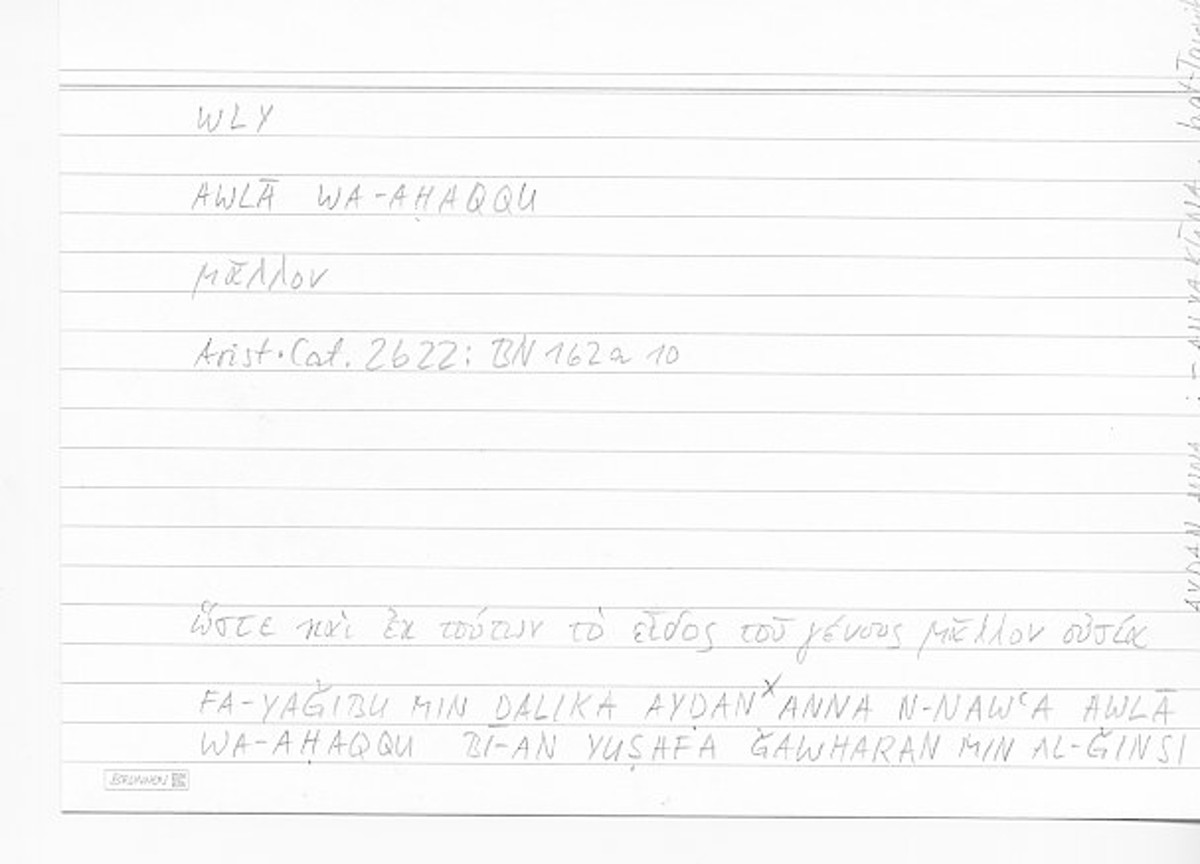 WLY
AWLĀ WA-AḤAQQU
μᾶλλον
Arist. Cat. 2b22: BN 162a 10
ὥστε καὶ ἐκ τούτων τὸ εἶδος τοῦ γένους μᾶλλον οὐσία
FA-YAǦIBU MIN ḎALIKA AYḌANˣ ANNA N-NAWʿA AWLĀ
WA-AḤAQQU BI-AN YUṢAFA ǦAWHARAN MIN AL-ǦINSI
BRUNNEN